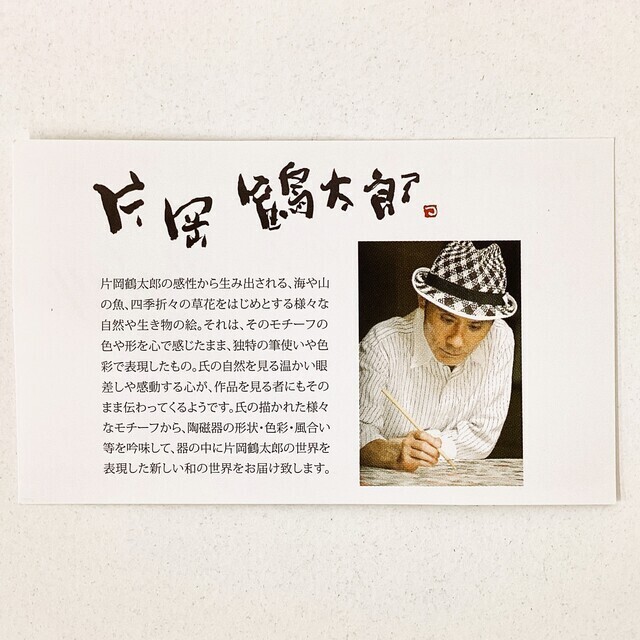 片岡鶴太郎
片岡鶴太郎の感性から生み出される、海や山
の魚、四季折々の草花をはじめとする様々な
自然や生き物の絵。それは、そのモチーフの
色や形を心で感じたまま、独特の筆使いや色
彩で表現したもの。氏の自然を見る温かい眼
差しや感動する心が、作品を見る者にもその
まま伝わってくるようです。氏の描かれた様々
なモチーフから、陶磁器の形状・色彩・風合い
等を吟味して、器の中に片岡鶴太郎の世界を
表現した新しい和の世界をお届け致します。